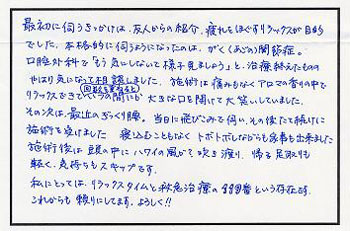 最初に伺うきっかけは、友人からの紹介、疲れをほぐすリラックスが目的
でした。本格的に伺うようになったのは、がく(あご)の関節症。
口腔外科を「もう気にしないで様子見ましょう」と、治療終えたものの
やはり気になって相談しました。施術は痛みもなくアロマの香りの中で
リラックスできていつの間にか 大きな口を開けて大笑いしていました。
回数を重ねると
その次は、最近のぎっくり腰。当日に飛びこみで伺い、その後たて続けに
施術を受けました 寝込むこともなくトボトボしながらも家事も出来ました
施術後は頭の中にハワイの風が吹き渡り、帰る足取りも
軽く、気持ちもスキップです。
私にとっては、リラックスタイムと救急治療の という存在です。
これからも頼りにしてます。よろしく!!